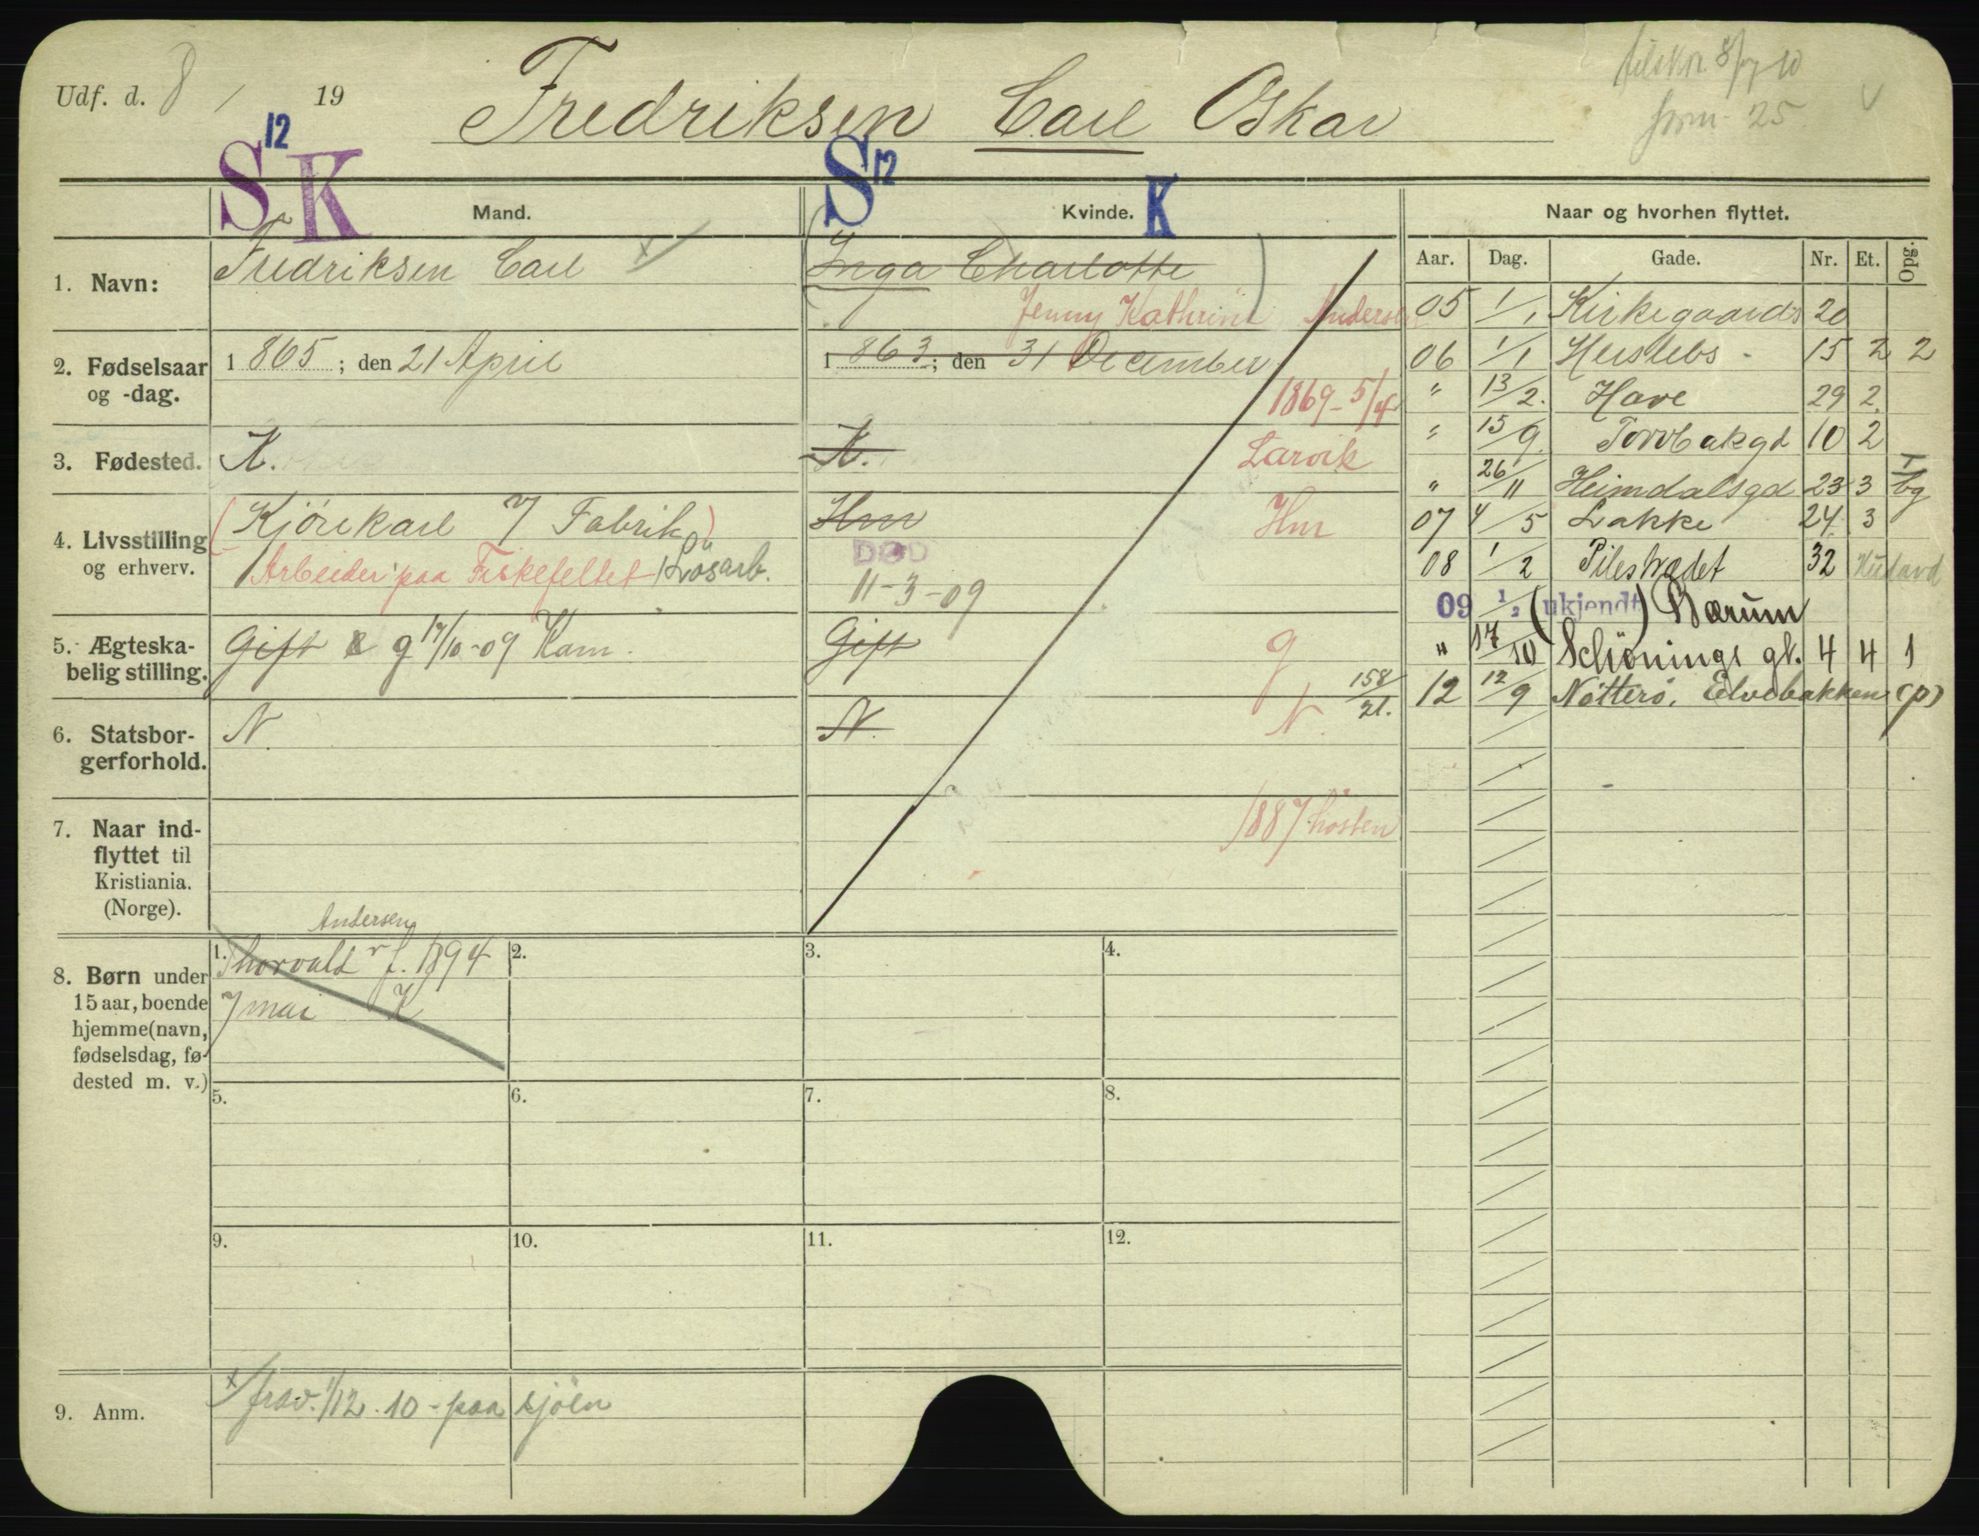 Udf. d. 8 / 19
Fredriksen Carl Oskar
25
S 12 K
S 12 K
Mand.
Kvinde.
Naar og hvorhen flyttet.
Aar. Dag. Gade. Nr. Et. Opg.
1. Navn:
Fredriksen Carl
Inga Charlotte
Jenny Kathrine Andersen
2. Fødselsaar
og -dag.
1 865 ; den 21 April
1 863 ; den 31 December
1869 - 5/4
3. Fødested.
K.
K.
Larvik
4. Livsstilling
og erhverv.
(Kjørekarl v/ Fabrik)
Arbeider paa Fiskefeltet Løsarb.
Hm
Hm
DØD
11-3-09
5. Ægteska-
belig stilling.
Gift g 17/10-09 Kam.
Gift
g
158/21.
6. Statsbor-
gerforhold.
N.
N.
N.
7. Naar ind-
flyttet til
Kristiania.
(Norge).
1887 høsten
05 1/1 Kirkegaards 20
06 1/1 Herslebs - 15 2 2
" 13/2. Have 29 2.
" 15/9. Torvbakgd 10 2
" 26/11 Heimdalsgd 23 3
07 4/5 Lakke 24. 3
08 1/2 Pilestrædet 32
09 1/2 (ukjendt) Bærum
" 17/10 Schønings gt. 4 4 1
12 12/9 Nøtterø, Elvebakken (p)
8. Børn under
15 aar, boende
hjemme (navn,
fødselsdag, fø-
dested m. v.)
1. 2. 3. 4.
Andersen
Thorvald f. 1894
7 mai K
5. 6. 7. 8.
9. 10. 11. 12.
9. Anm.
x/ frav. 1/12. 10 - paa sjøen